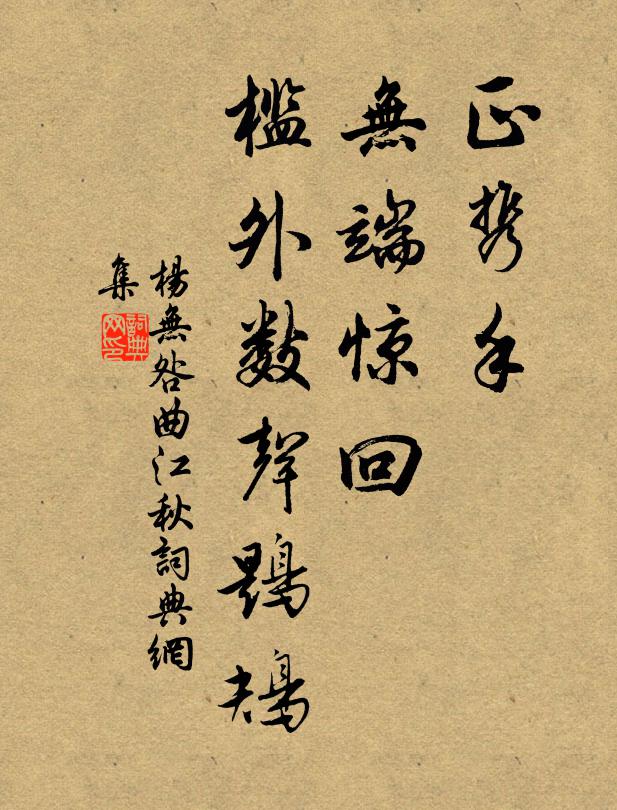 正携手
無端惊回
檻外数聲鶗鴂
楊無咎曲江秋詞典網
集
詞典
网印